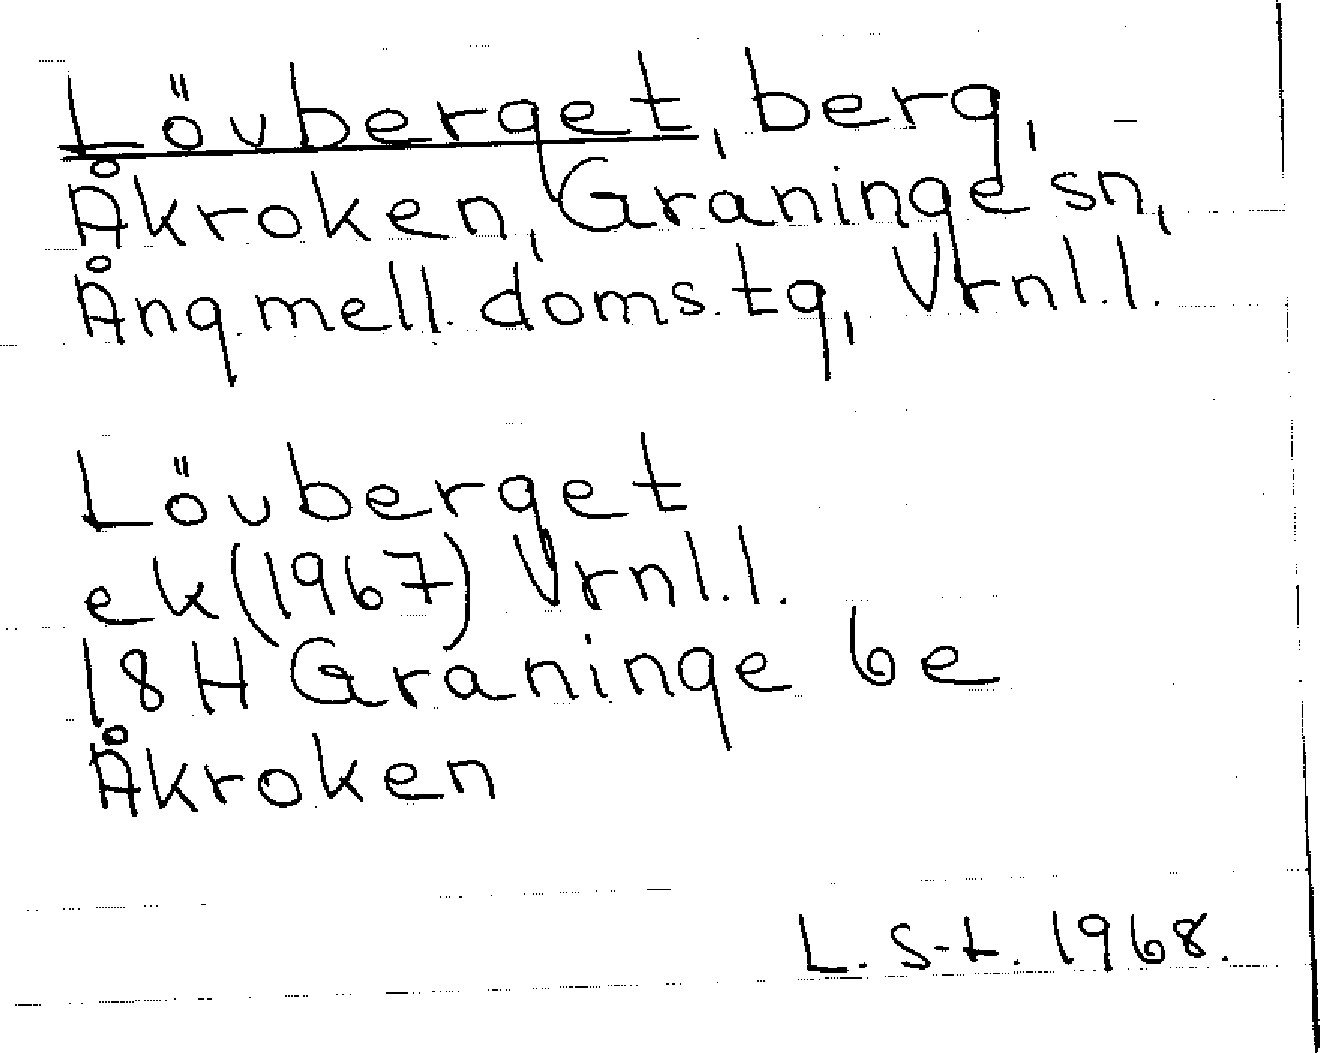 Lövberget, berg,
Åkroken, Graninge sn,
Ång.mell. doms.tg, Vrnl.l.
Lövberget
ek (1967) Vrnl.l.
18H Graninge 6e
Åkroken
L. S-t. 1968.